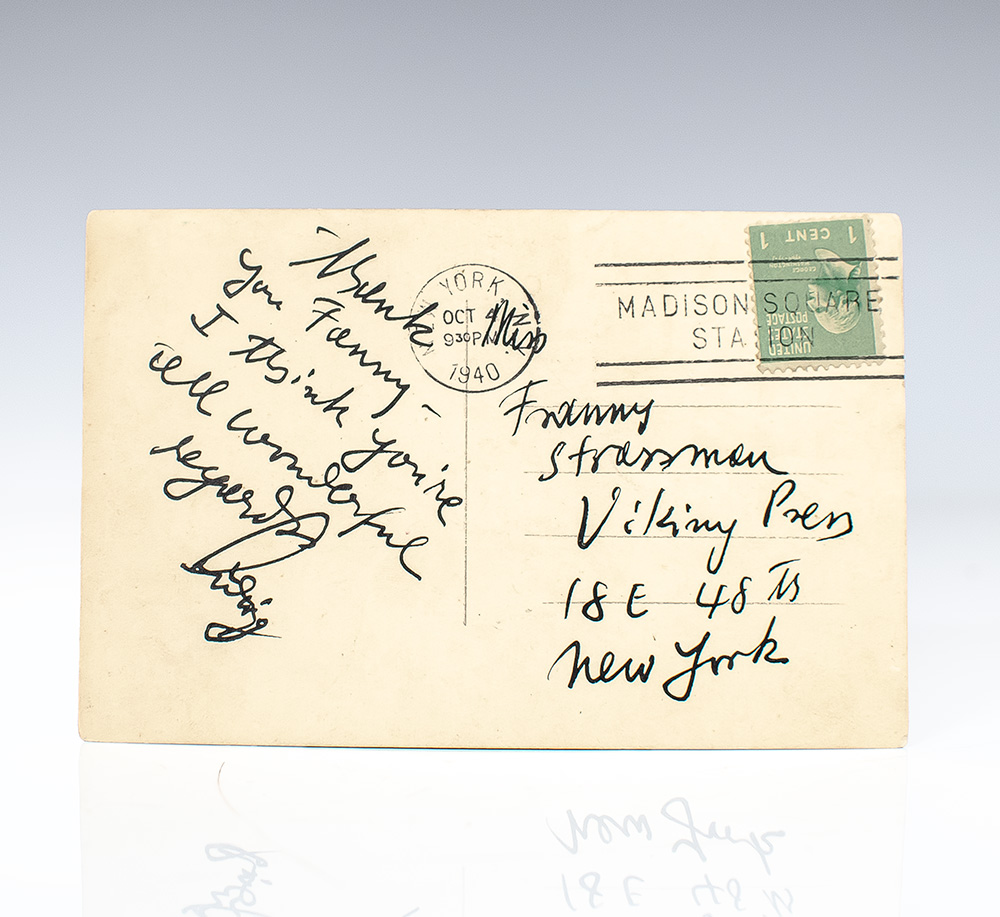 Thank
you Fanny –
I think you're
all wonderful
regards
NEW YORK, N.Y.
OCT 4
930PM
1940
MADISON SQUARE
STATION
1 CENT 1
UNITED
STATES
POSTAGE
Miss
Franny
Strassman
Viking Press
18 E 48th
New York